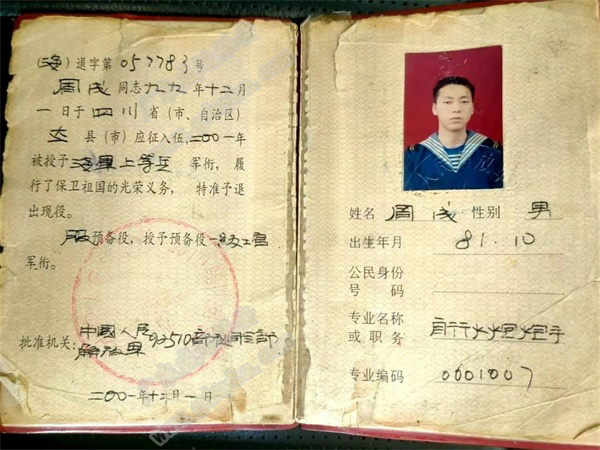 (海)退字第057783号
周成同志九九年十二月
一日于四川省(市、自治区)
县(市)应征入伍,二〇〇一年
被授予海军上等兵军衔,履
行了保卫祖国的光荣义务,特准予退
出现役。
服预备役,授予预备役一级士官
军衔。
批准机关:中國人民
解放军92510部队司令部
二〇〇一年十二月一日
姓名 周成 性别 男
出生年月 81.10
公民身份
号码
专业名称
或职务 自行火炮炮手
专业编码 0001007